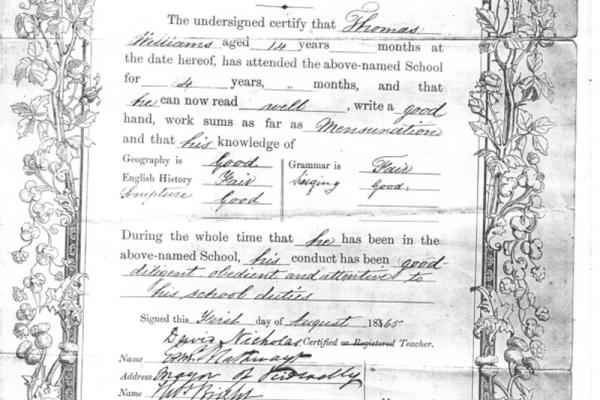 The undersigned certify that Thomas
Williams aged 14 years months at
the date hereof, has attended the above-named School
for 4 years, „ months, and that
he can now read well, write a good
hand, work sums as far as Mensuration
and that his knowledge of
Geography is Good Grammar is Fair
English History Fair Singing Good.
Scripture Good
During the whole time that he has been in the
above-named School, his conduct has been good
diligent obedient and attentive to
his school duties
Signed this First day of August 1865
Davis Nicholas Certified or Registered Teacher.
Name
Address Mayor of
Name Wright